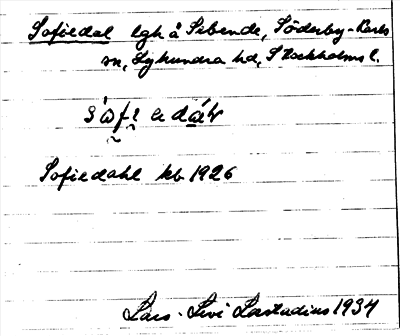 Sofiedal lgh å Sibende, Söderby-Karls
sn, Lyhundra hd, Stockholms l.
Sofiedahl kb 1926
Lars-Levi Læstadius 1934